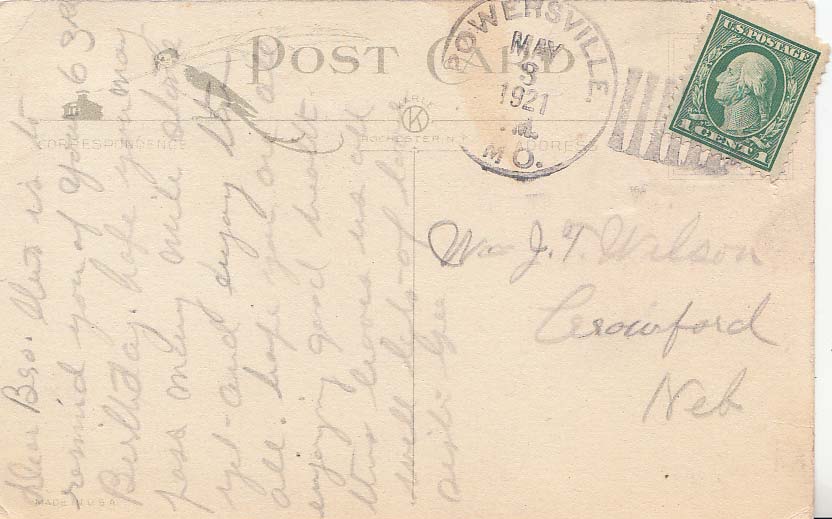 POST CARD
CORRESPONDENCE
ROCHESTER N.Y.
ADDRESS
K
POWERSVILLE.
MAY
3
1921
MO.
U.S. POSTAGE
1 CENT 1
J. T. Wilson
Crawford
Neb
Dear Bro. this is to
remind you of your 63rd
Birthday. hope you may
pass many mile stone
yet and enjoy them
all. hope you are all
enjoying good health
this leaves us all
well. lots of love
MADE IN U.S.A.